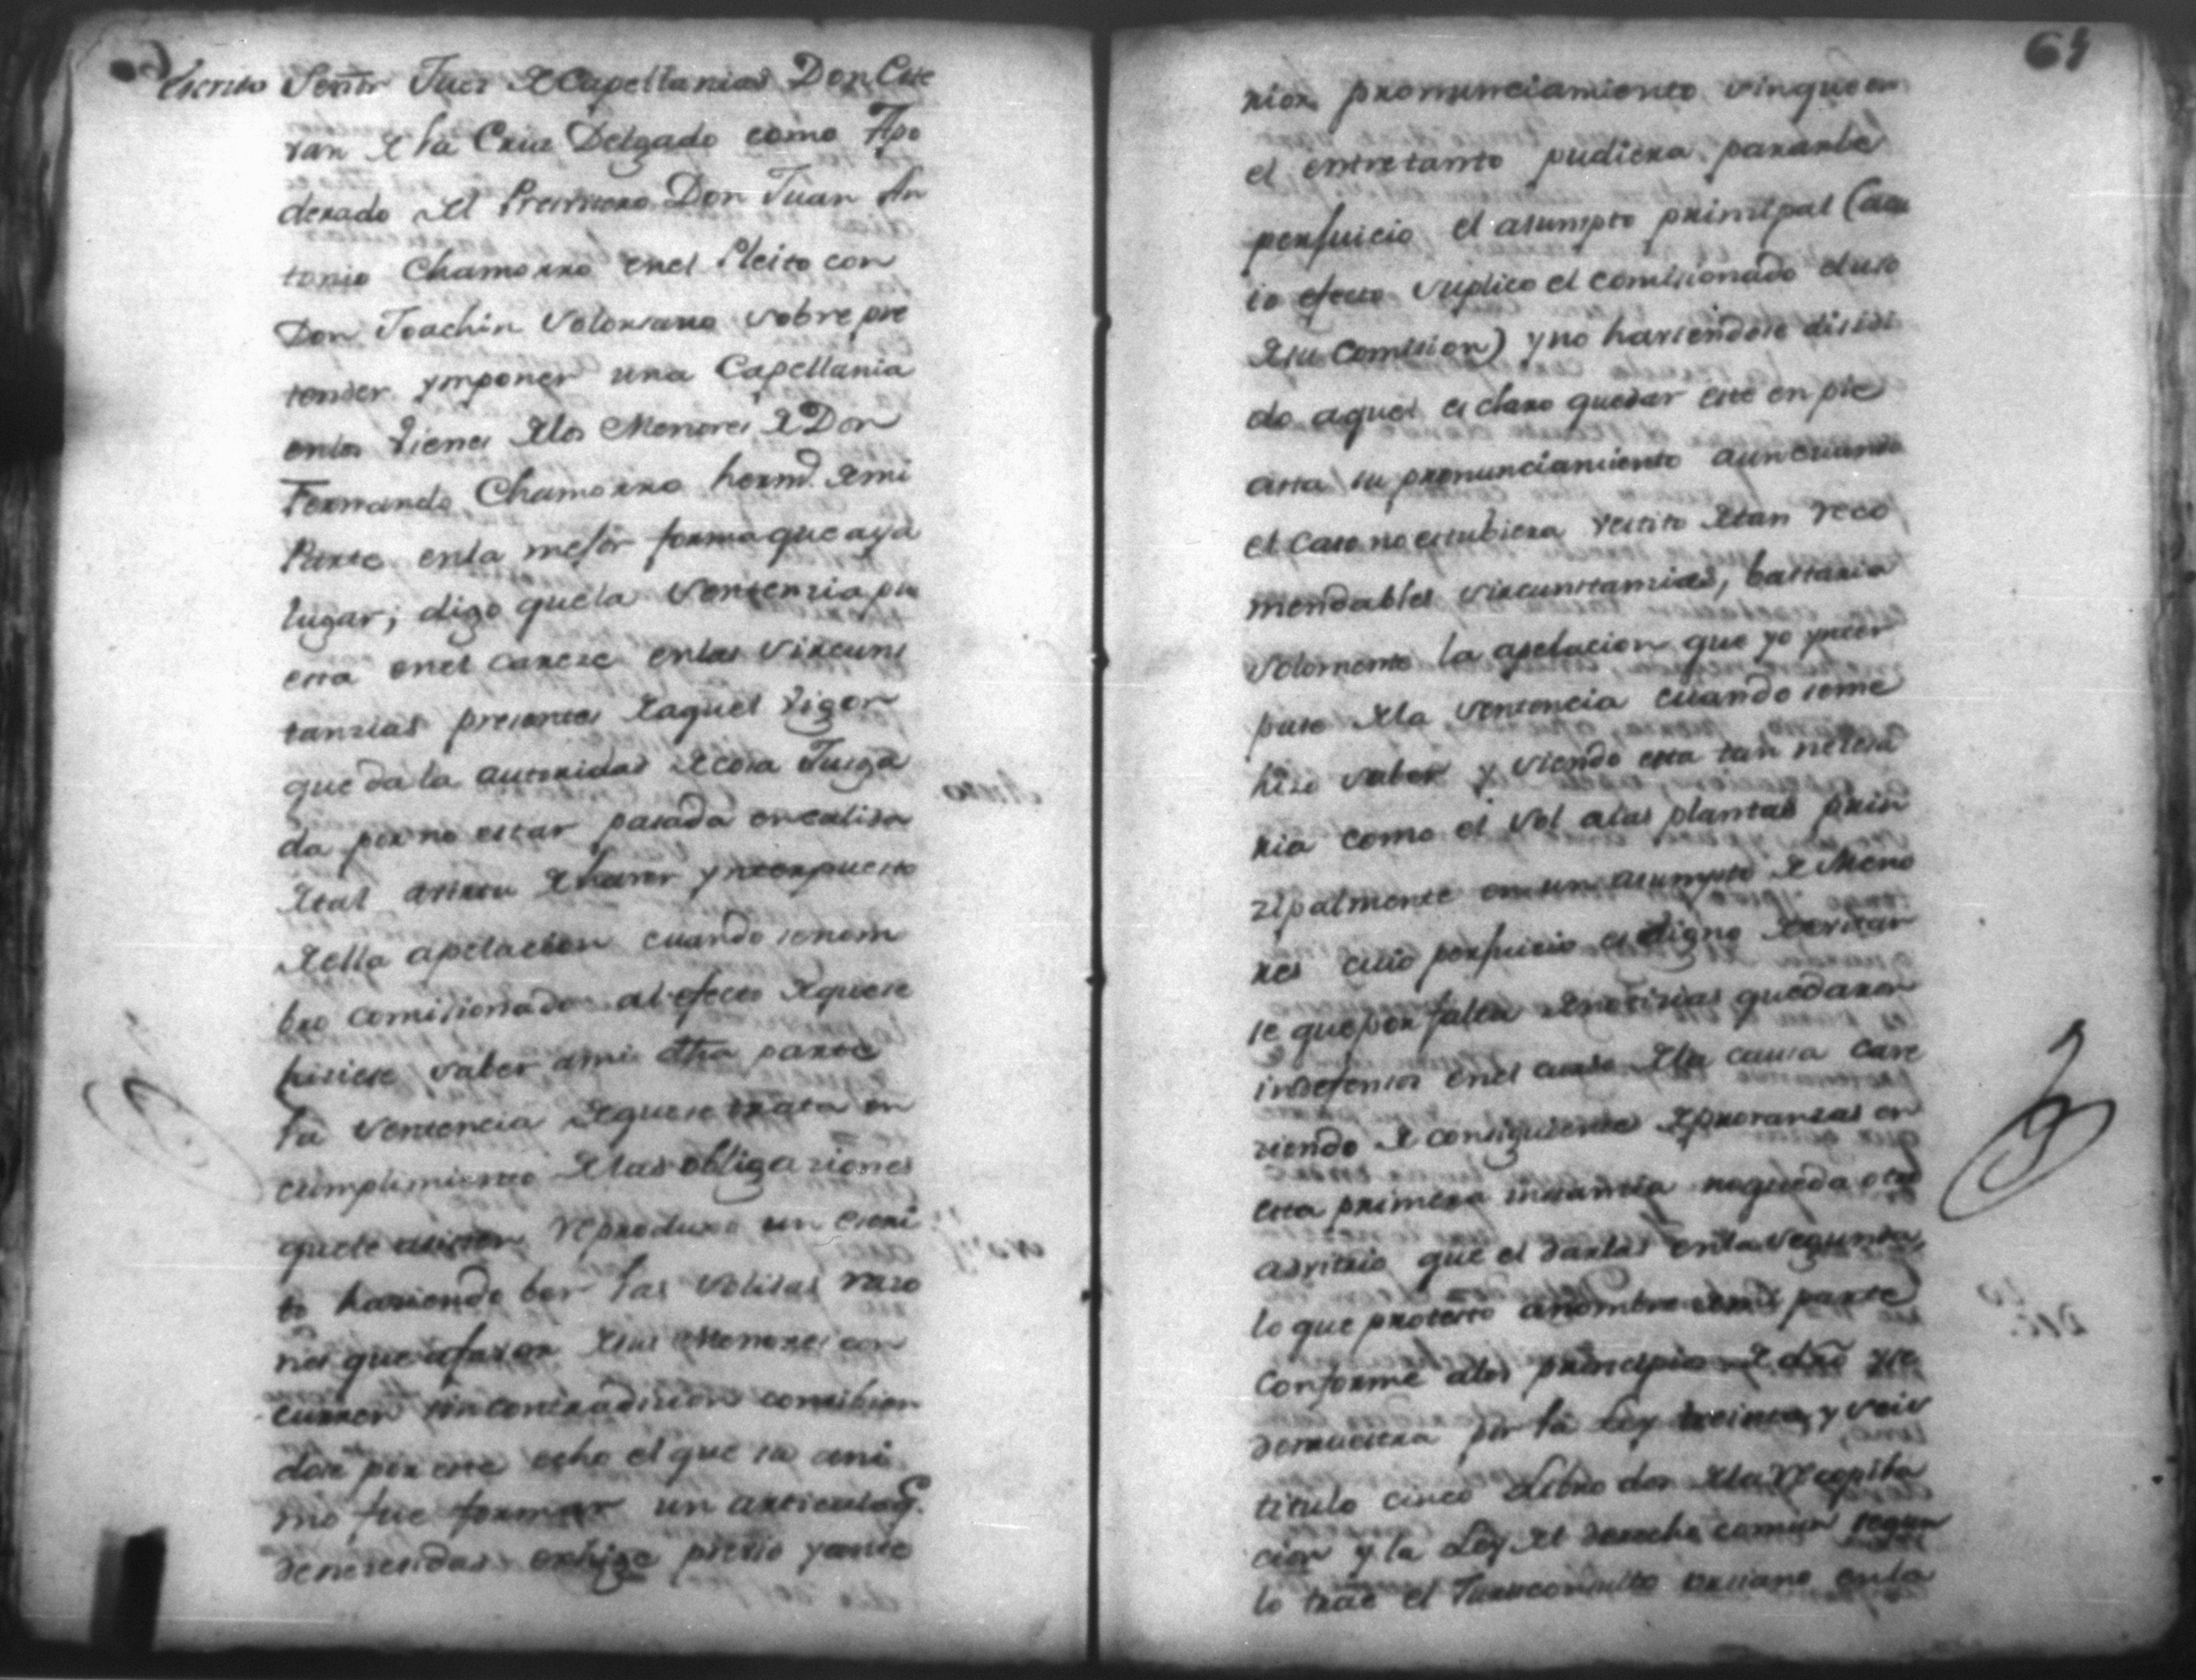 Escrito Señor Juez de Capellanias Don Este
van de la Cruz Delgado como Apo
derado del Presvitero Don Juan An
tonio Chamorro enel Pleito con
Don Joachin Solorsano sobre pre
tender ymponer una Capellania
enlos vienes delos Menores de Don
Fernando Chamorro hermº. demi
Parte enla mejor forma que aya
lugar; digo quela sentenzia pu
esta enel careze enlas sircuns
tanzias presentes de aquel vigor
que da la autoridad de cosa Juzga
da por no estar pasada en calidad
de tal y ynterpuesto
de ella apelacion cuando senom
bro comisionado al efecto de que se
hisiese saber ami dha parte
la sentencia de que se trata en
cumplimiento delas obligaziones
que le asisten reproduxo un escri
to haziendo ber las solidas razo
nes que afavor de sus Menores con
curren sin contradizion consibien
dose por este echo el que su ani
mo fue formar un articulo q.
denenesidad exhige previo y ante
64
rior pronunciamiento sin que en
el entretanto pudiera pararle
perjuicio el asumpto prinsipal (cu
io efecto suplico el comisionado el uso
de su Comision) y no haviendose disidi
do aquel es claro quedar este en pie
asta su pronunciamiento aun cuando
el caso no estubiera vestito de tan reco
mendables sircunstanzias, bastaria
solomente la apelacion que yo ynter
puse dela sentencia cuando seme
hizo saber y siendo esta tan nesesa
ria como el sol alas plantas prin
zipalmente en un asumpto de Meno
res cuio perjuicio es digno de evitar
se que por falta de notizias quedaron
indefensos enel curso dela causa care
ziendo de consiguiente de provanzas en
esta primera instancia no queda otro
advitrio que el darlas enla segunda,
lo que protesto anombre de mi parte
Conforme alos principios de dro y se
demuestra por la Ley treinta y seis
titulo cinco Libro dos dela Recopila
cion y la Ley del derecho comun segun
lo trae el Jurisconsulto enla